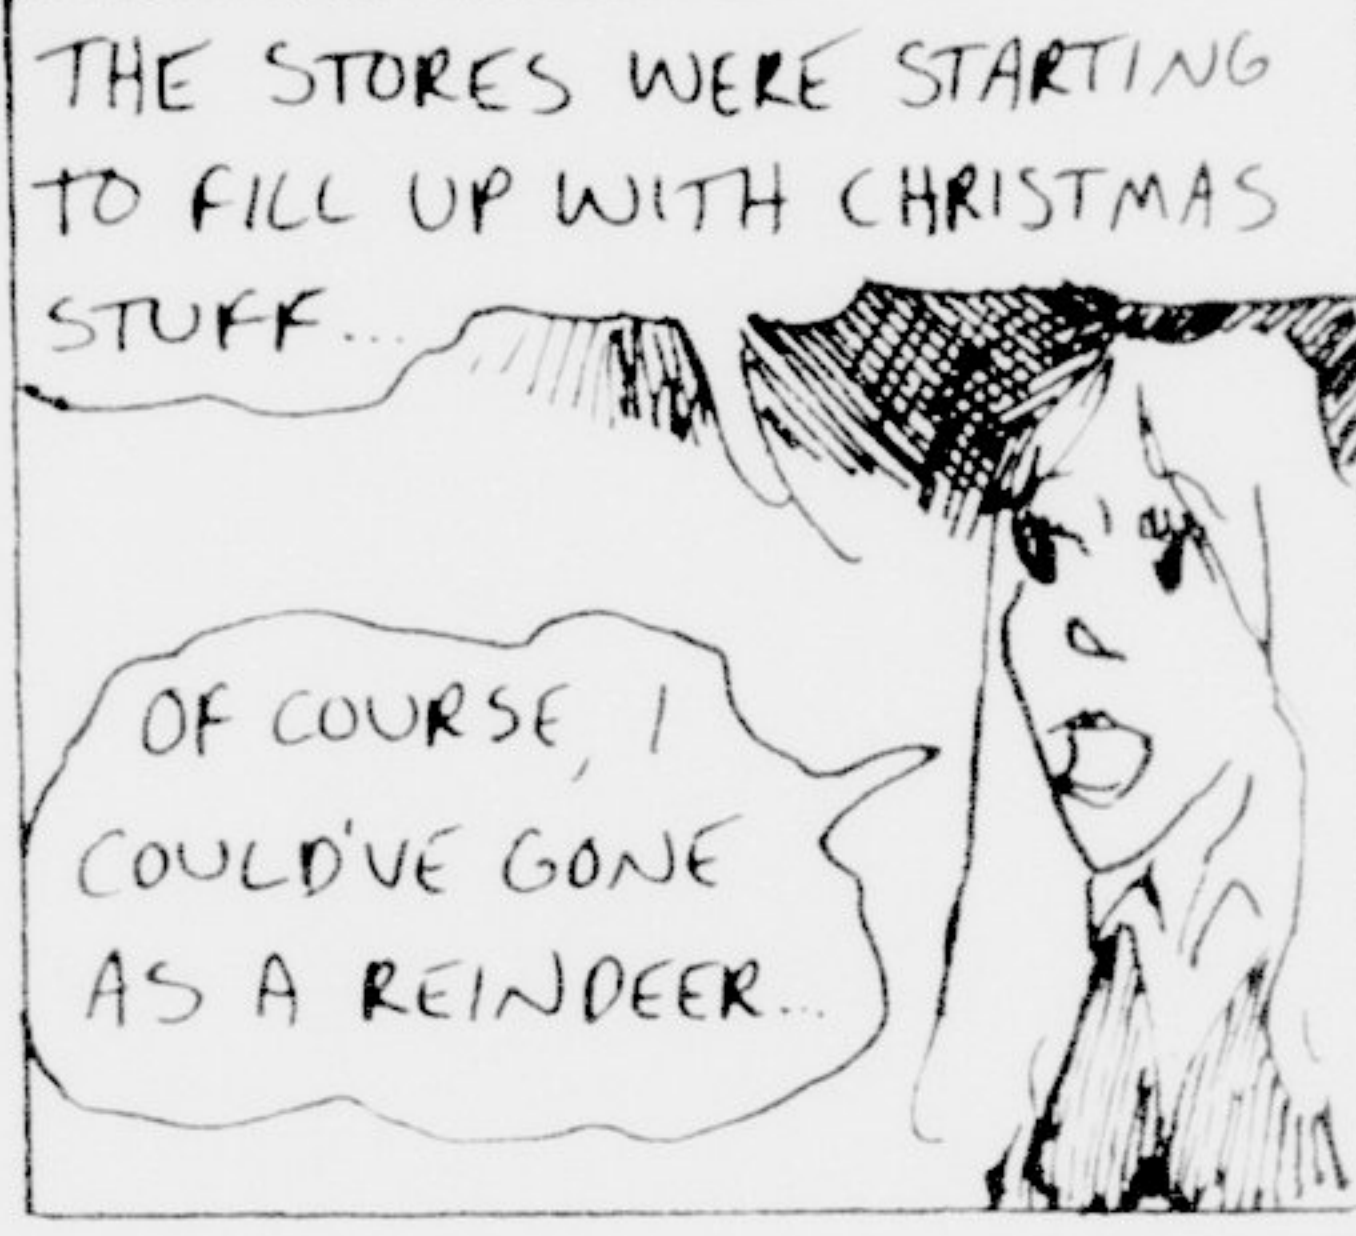 THE STORES WERE STARTING
TO FILL UP WITH CHRISTMAS
STUFF...
OF COURSE, I
COULD'VE GONE
AS A REINDEER...